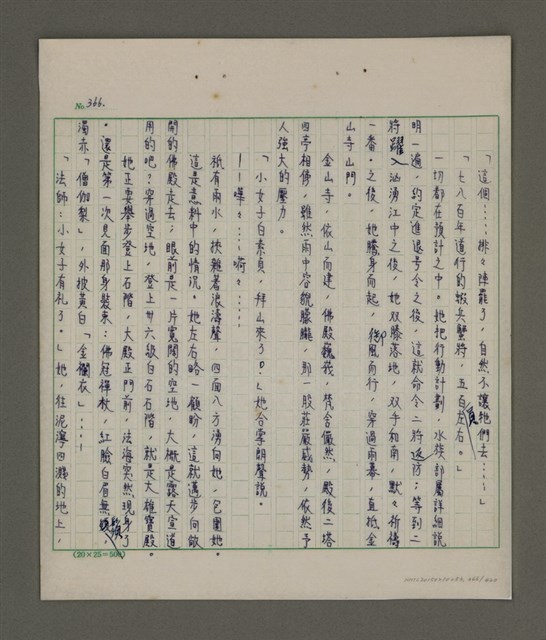 No. 366.
「這個⋯⋯排々陣罷了，自然不讓她們去⋯⋯」
「七八百年道行的蝦兵蟹將，五百員左右。」
一切都在預計之中。她把行動計劃，水族部屬詳細說
明一遍，約定進退号令之後，這就命令二將返防；等到二
將躍入洶湧江中之後，她双膝落地，双手和南，默々祈禱
一番。之後，她騰身而起，御風而行，穿過雨幕，直抵金
山寺山門。
金山寺，依山而建，佛殿巍峩，梵舍儼然，殿後二塔
四亭相佛，雖然雨中容貌朦朧，那一股莊嚴威勢，依然予
人強大的壓力。
「小女子白素貞，拜山來了。」她合掌朗聲說。
——嘩⋯⋯嗬⋯⋯
祇有雨水，挾雜著浪濤聲，四面八方湧向她，包圍她。
這是意料中的情況。她左右略一顧盼，這就邁步向敞
開的佛殿走去；眼前是一片寬闊的空地，大概是露天宣道
用的吧？穿過空地，登上卅六級白石石階，就是大雄寶殿。
她正要舉步登上石階，大殿正門前，法海突然現身了
。還是第一次見面那身裝束：佛冠禪杖，紅臉白眉無鬚，
濁赤「僧伽梨」，外披黃白「金襴衣」⋯⋯
「法師：小女子有礼了。」她，往泥濘四濺的地上，
(20×25=500)